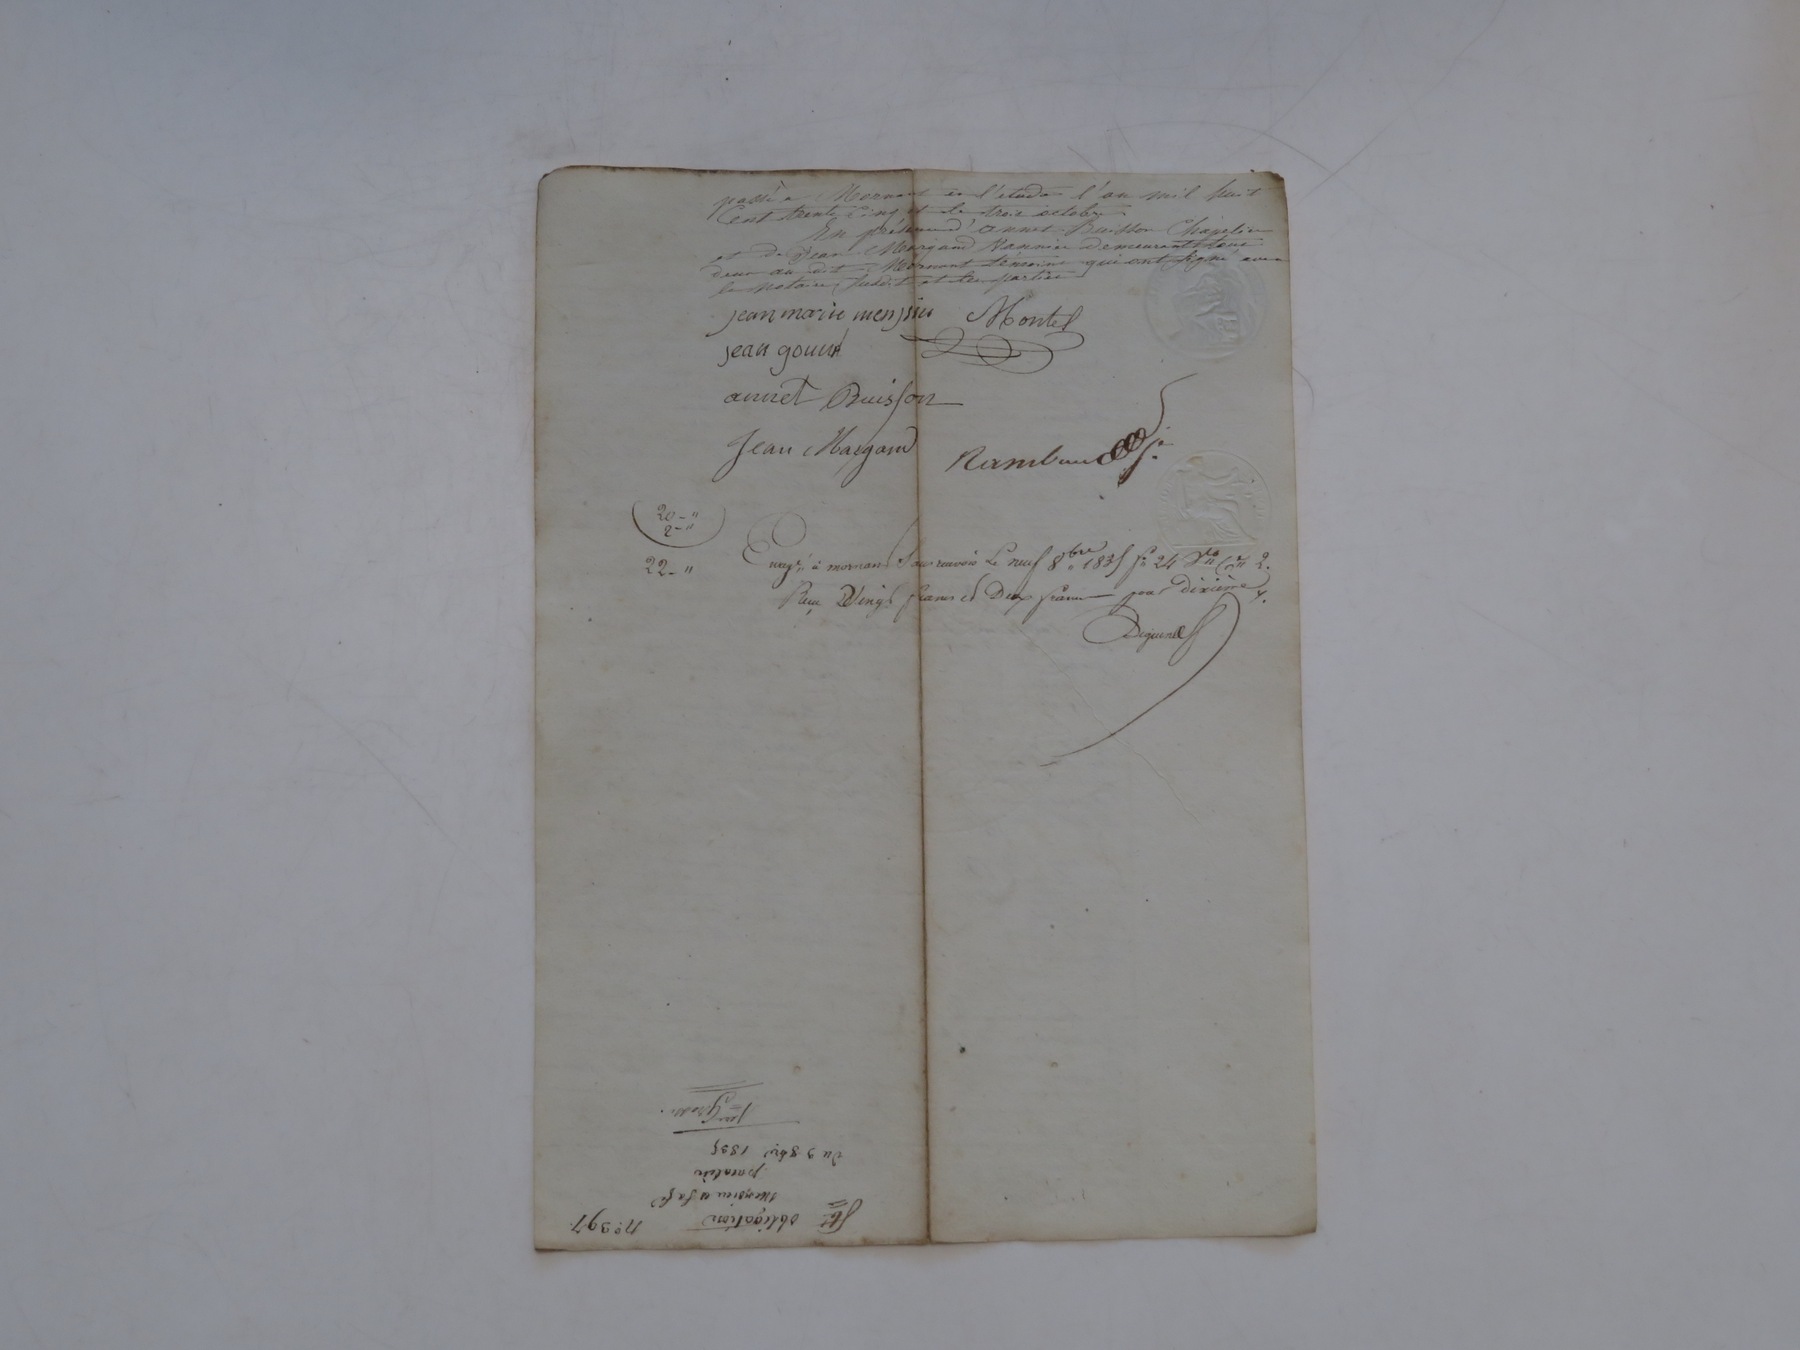 passé à Mornant en l'étude l'an mil huit
Cent trente Cinq et le trois octobre
En présence d'annet Buisson Chapelier
et de Jean Margand Vannier demeurants tous
deux au dit Mornant témoins qui ont signé avec
le notaire susdit et les parties
jean marie mensieu Montel
jean gouné
annet Buisson
Jean Margand Rambaud je
20 - "
2 - "
22 - "
Enregé à mornant sans renvoi le neuf 8bre 1835 fo 24 Vo Ce 2.
Reçu Vingt francs et Deux francs pour dixième
No 397
obligation
mensieu
du 3 8bre 1835
1ere Grosse